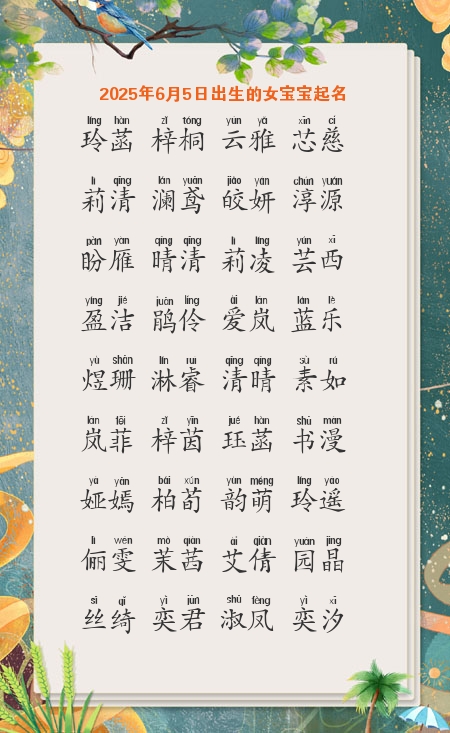 2025年6月5日出生的女宝宝起名
líng hàn zǐ tóng yún yǎ xīn cí
玲菡 梓桐 云雅 芯慈
lì qīng lán yuān jiǎo yán chún yuán
莉清 澜鸢 皎妍 淳源
pàn yàn qíng qīng lì líng yún xī
盼雁 晴清 莉凌 芸西
yíng jié juān líng ài lán lán lè
盈洁 鹃伶 爱岚 蓝乐
yù shān lín ruì qīng qíng sù rú
煜珊 淋睿 清晴 素如
lán fēi zǐ yīn jué hàn shū màn
岚菲 梓茵 珏菡 书漫
yà yān bǎi xún yùn méng líng yáo
娅嫣 柏荀 韵萌 玲遥
lì wén mò qiàn ài qiàn yuán jīng
俪雯 茉茜 艾倩 园晶
sī qǐ yì jūn shū fèng yì xī
丝绮 奕君 淑凤 奕汐